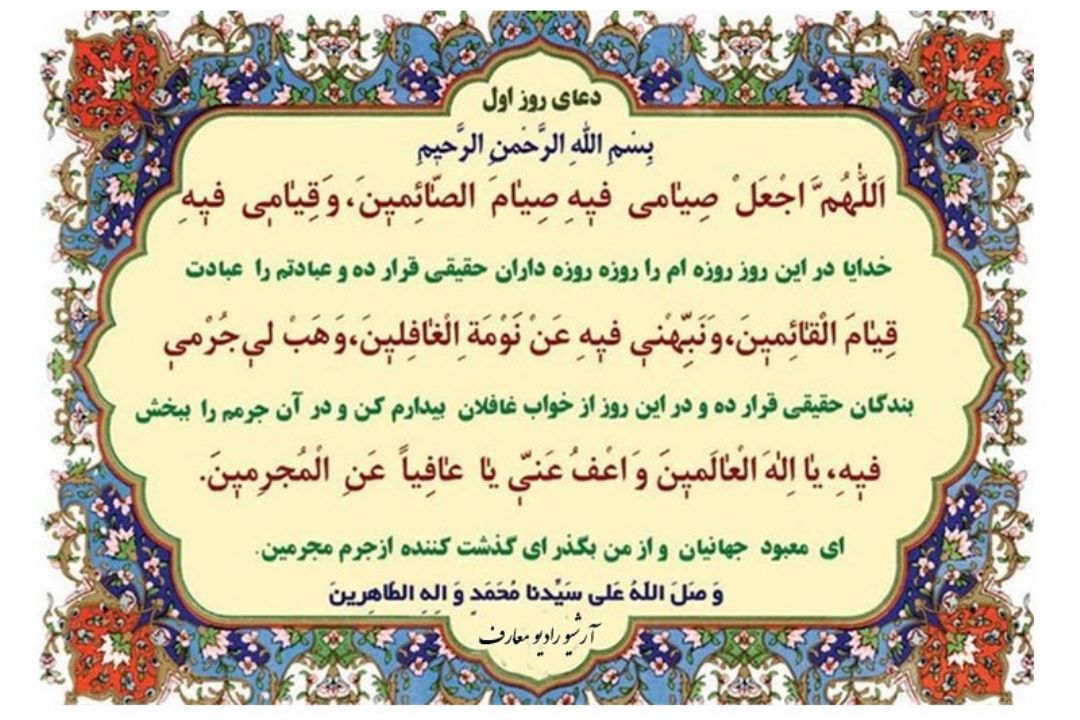 دعای روز اول
بِسْمِ اللهِ الرَّحْمنِ الرَّحيٖمِ
اَللّٰهُمَّ اجْعَلْ صِيٰامى فيٖهِ صِيٰامَ الصّٰائِميٖنَ، وَقِيٰاميٖ فيٖهِ
خدایا در این روز روزه ام را روزه روزه داران حقیقی قرار ده و عبادتم را عبادت
قِيٰامَ الْقٰائِميٖنَ، وَنَبِّهْنيٖ فيٖهِ عَنْ نَوْمَةِ الْغٰافِليٖنَ، وَهَبْ ليٖ جُرْميٖ
بندگان حقیقی قرار ده و در این روز از خواب غافلان بیدارم کن و در آن جرمم را ببخش
فيٖهِ، يٰا اِلٰهَ الْعٰالَميٖنَ وَ اعْفُ عَنّيٖ يٰا عٰافِياً عَنِ الْمُجرِميٖنَ.
ای معبود جهانیان و از من بگذر ای گذشت کننده ازجرم مجرمین.
وَ صَلَ اللّهُ عَلی سَیِّدنا مُحَمَدٍ وَ الِهِ الطّاهِرینَ
آرشیو رادیو معارف